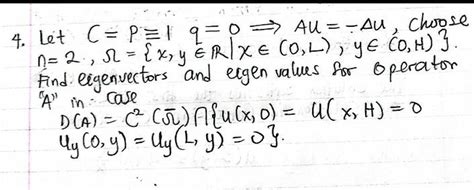 4. Let C = P ≡ 1 q = 0 ⟹ Au = -Δu, Choose
n = 2, Ω = {x, y ∈ ℝ | x ∈ (0, L), y ∈ (0, H)}.
Find eigenvectors and eigen values for operator
"A" in case
D(A) = C² (Ω̅) ∩ {u(x, 0) = u(x, H) = 0
u_y(0, y) = u_y(L, y) = 0}.